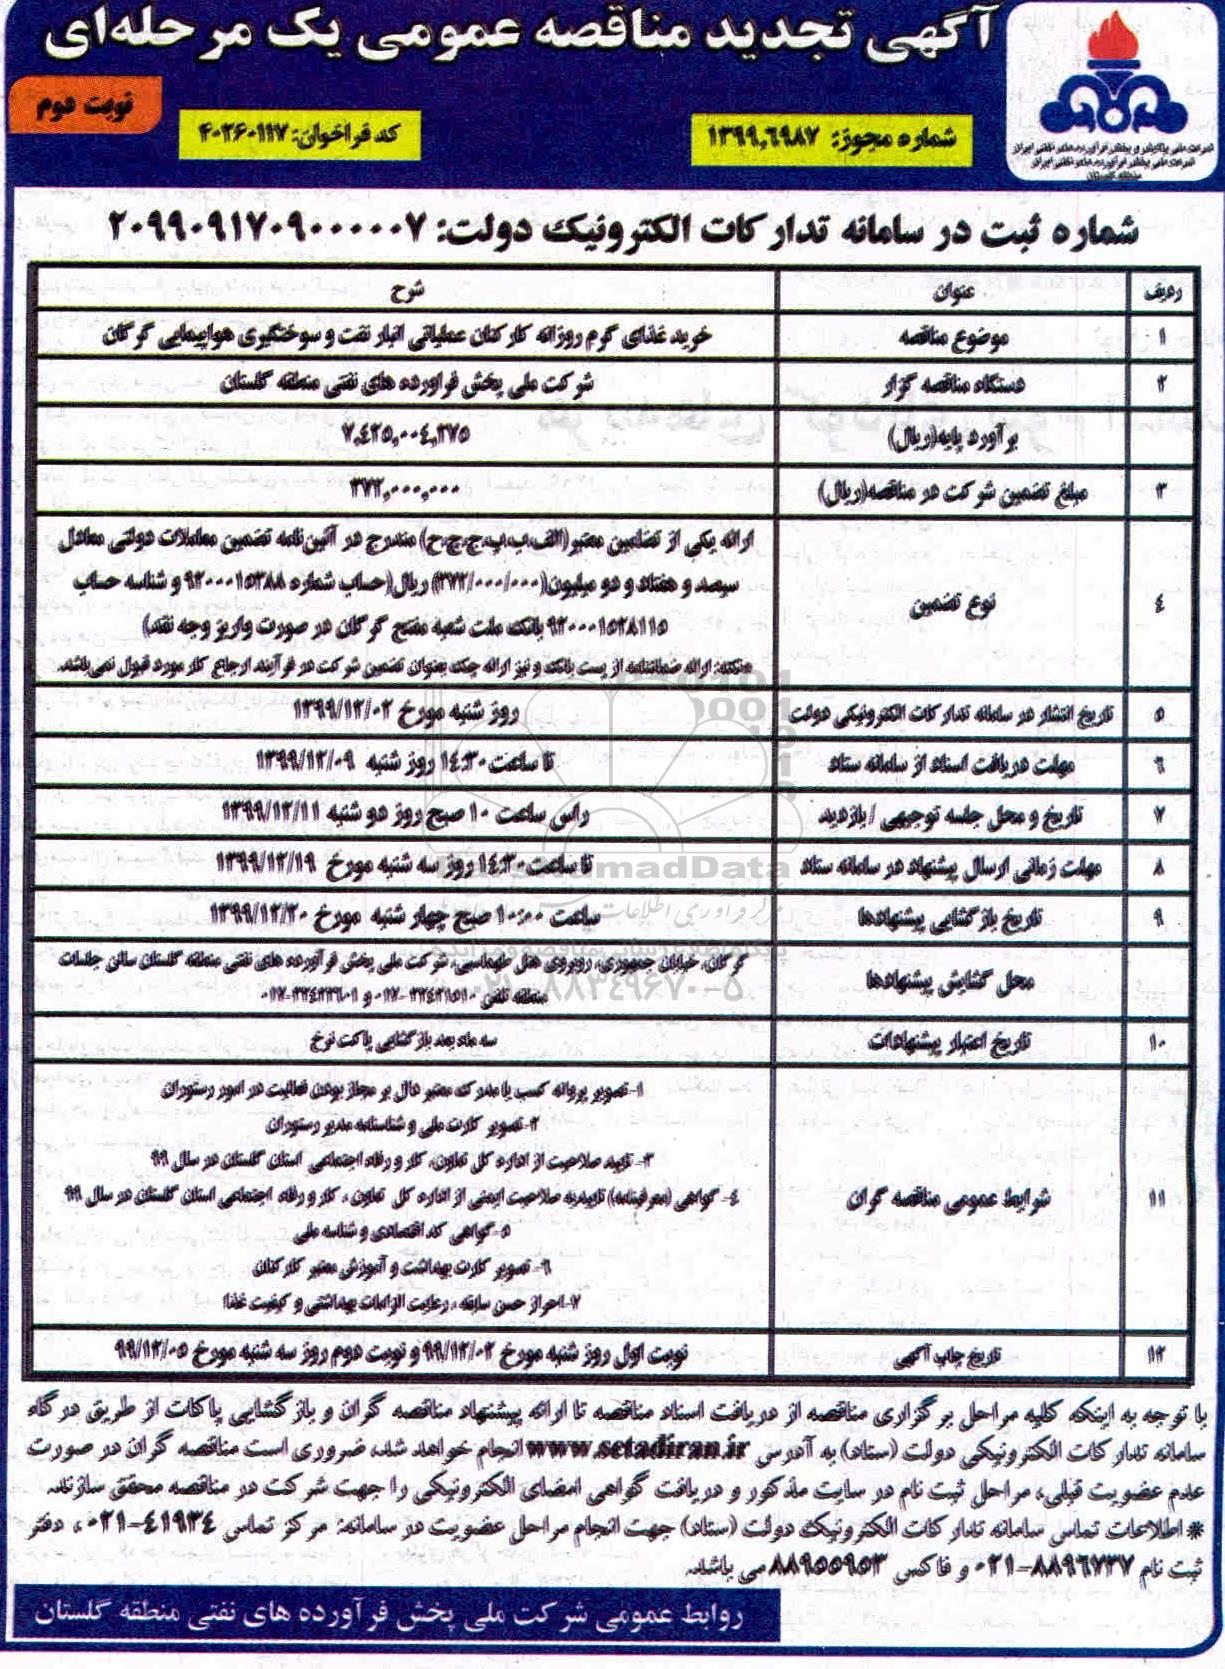 آگهی تجدید مناقصه عمومی یک مرحله‌ای
نوبت دوم
شماره مجوز: ۱۳۹۹.۶۹۸۷
کد فراخوان: ۴۰۲۶۰۱۱۷
شرکت ملی پالایش و پخش فرآورده های نفتی ایران
شرکت ملی پخش فرآورده های نفتی ایران
منطقه گلستان
شماره ثبت در سامانه تدارکات الکترونیک دولت: ۲۰۹۹۰۹۱۷۰۹۰۰۰۰۰۷
ردیف عنوان شرح
۱ موضوع مناقصه خرید غذای گرم روزانه کارکنان عملیاتی انبار نفت و سوختگیری هواپیمایی گرگان
۲ دستگاه مناقصه گزار شرکت ملی پخش فراورده های نفتی منطقه گلستان
برآورد پایه(ریال) ۷,۴۲۵,۰۰۴,۲۷۵
۳ مبلغ تضمین شرکت در مناقصه(ریال) ۳۷۲,۰۰۰,۰۰۰
۴ نوع تضمین ارائه یکی از تضامین معتبر(الف.ب.پ.ج.چ.ح) مندرج در آئین‌نامه تضمین معاملات دولتی معادل
سیصد و هفتاد و دو میلیون(۳۷۲/۰۰۰/۰۰۰) ریال(حساب شماره ۹۲۰۰۰۱۵۳۸۸ و شناسه حساب
۹۲۰۰۰۱۵۲۸۱۱۵ بانک ملت شعبه مفتح گرگان در صورت واریز وجه نقد)
نکته: ارائه ضمانتنامه از پست بانک و نیز ارائه چک بعنوان تضمین شرکت در فرآیند ارجاع کار مورد قبول نمی‌باشد.
۵ تاریخ انتشار در سامانه تدارکات الکترونیکی دولت روز شنبه مورخ ۱۳۹۹/۱۲/۰۲
۶ مهلت دریافت اسناد از سامانه ستاد تا ساعت ۱۴:۳۰ روز شنبه ۱۳۹۹/۱۲/۰۹
۷ تاریخ و محل جلسه توجیهی / بازدید راس ساعت ۱۰ صبح روز دو شنبه ۱۳۹۹/۱۲/۱۱
۸ مهلت زمانی ارسال پیشنهاد در سامانه ستاد تا ساعت ۱۴:۳۰ روز سه شنبه مورخ ۱۳۹۹/۱۲/۱۹
۹ تاریخ بازگشایی پیشنهادها ساعت ۱۰:۰۰ صبح چهار شنبه مورخ ۱۳۹۹/۱۲/۲۰
محل گشایش پیشنهادها گرگان، خیابان جمهوری، روبروی هتل طهماسبی، شرکت ملی پخش فرآورده های نفتی منطقه گلستان سالن جلسات
منطقه تلفن
۱۰ تاریخ اعتبار پیشنهادات سه ماه بعد بازگشایی پاکت نرخ
۱۱ شرایط عمومی مناقصه گران ۱-تصویر پروانه کسب یا مدرک معتبر دال بر مجاز بودن فعالیت در امور رستوران
۲-تصویر کارت ملی و شناسنامه مدیر رستوران
۳- تایید صلاحیت از اداره کل تعاون، کار و رفاه اجتماعی استان گلستان در سال ۹۹
۴- گواهی (معرفینامه) تاییدیه صلاحیت ایمنی از اداره کل تعاون ، کار و رفاه اجتماعی استان گلستان در سال ۹۹
۵-گواهی کد اقتصادی و شناسه ملی
۶- تصویر کارت بهداشت و آموزش معتبر کارکنان
۷-احراز حسن سابقه ، رعایت الزامات بهداشتی و کیفیت غذا؛
۱۲ تاریخ چاپ آگهی نوبت اول روز شنبه مورخ ۹۹/۱۲/۰۲ و نوبت دوم روز سه شنبه مورخ ۹۹/۱۲/۰۵
با توجه به اینکه کلیه مراحل برگزاری مناقصه از دریافت اسناد مناقصه تا ارائه پیشنهاد مناقصه گران و بازگشایی پاکات از طریق درگاه
سامانه تدارکات الکترونیکی دولت (ستاد) به آدرس www.setadiran.ir انجام خواهد شد، ضروری است مناقصه گران در صورت
عدم عضویت قبلی، مراحل ثبت نام در سایت مذکور و دریافت گواهی امضای الکترونیکی را جهت شرکت در مناقصه محقق سازند.
* اطلاعات تماس سامانه تدارکات الکترونیک دولت (ستاد) جهت انجام مراحل عضویت در سامانه: مرکز تماس ۴۱۹۳۴-۰۲۱ ، دفتر
ثبت نام ۸۸۹۶۷۳۷-۰۲۱ و فاکس ۸۸۹۵۵۹۵۳ می باشد.
روابط عمومی شرکت ملی پخش فرآورده های نفتی منطقه گلستان